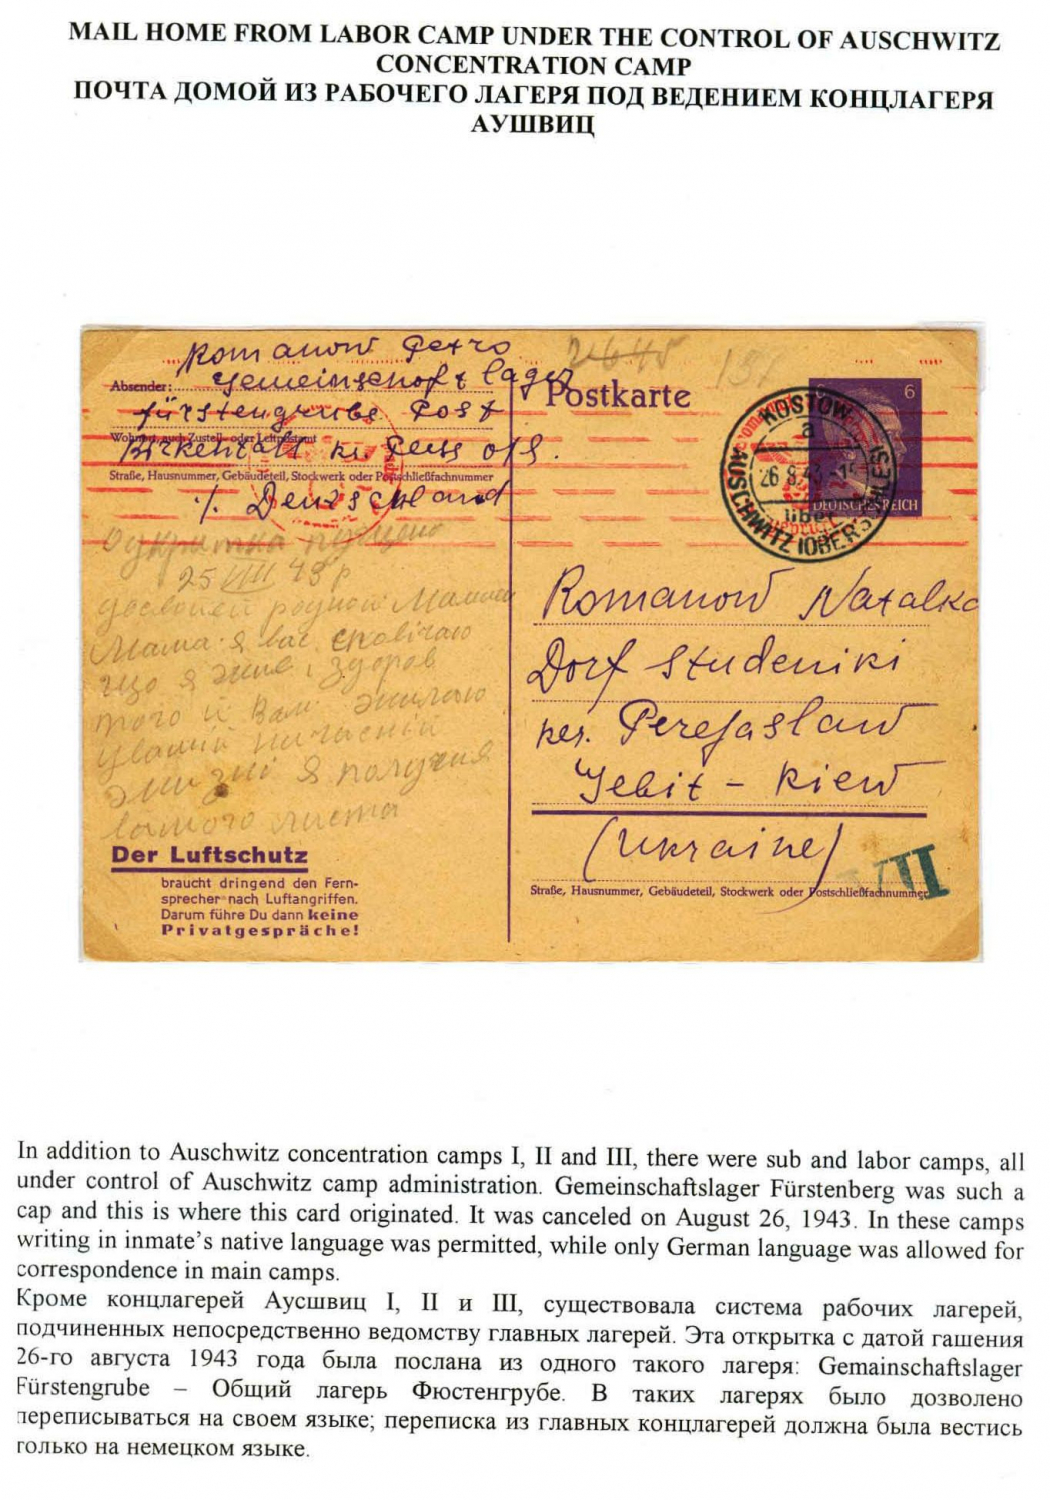 MAIL HOME FROM LABOR CAMP UNDER THE CONTROL OF AUSCHWITZ
CONCENTRATION CAMP
ПОЧТА ДОМОЙ ИЗ РАБОЧЕГО ЛАГЕРЯ ПОД ВЕДЕНИЕМ КОНЦЛАГЕРЯ
АУШВИЦ
Romanow Petro
Absender: Gemeinschaft lager
Fürstengrube Post
Wohnort, auch Zustell- oder Leitpostamt
Birkental kr. Pless o/S.
Straße, Hausnummer, Gebäudeteil, Stockwerk oder Postschließfachnummer
Deutschland
Postkarte
6
DEUTSCHES REICH
KOSTOW
a
26.8.43
über
AUSCHWITZ (OBERSCHLES)
25 VIII 43 р
Мама я вас сповіщаю
що я жив і здоров
того й Вам желаю
жизні я получив
листа
Romanow Natalka
Dorf Studeniki
kr. Perejaslaw
Gebit - Kiew
(Ukraine)
Der Luftschutz
braucht dringend den Fern-
sprecher nach Luftangriffen.
Darum führe Du dann keine
Privatgespräche!
Straße, Hausnummer, Gebäudeteil, Stockwerk oder Postschließfachnummer
VII
In addition to Auschwitz concentration camps I, II and III, there were sub and labor camps, all
under control of Auschwitz camp administration. Gemeinschaftslager Fürstenberg was such a
cap and this is where this card originated. It was canceled on August 26, 1943. In these camps
writing in inmate's native language was permitted, while only German language was allowed for
correspondence in main camps.
Кроме концлагерей Аусшвиц I, II и III, существовала система рабочих лагерей,
подчиненных непосредственно ведомству главных лагерей. Эта открытка с датой гашения
26-го августа 1943 года была послана из одного такого лагеря: Gemainschaftslager
Fürstengrube – Общий лагерь Фюстенгрубе. В таких лагерях было дозволено
переписываться на своем языке; переписка из главных концлагерей должна была вестись
только на немецком языке.